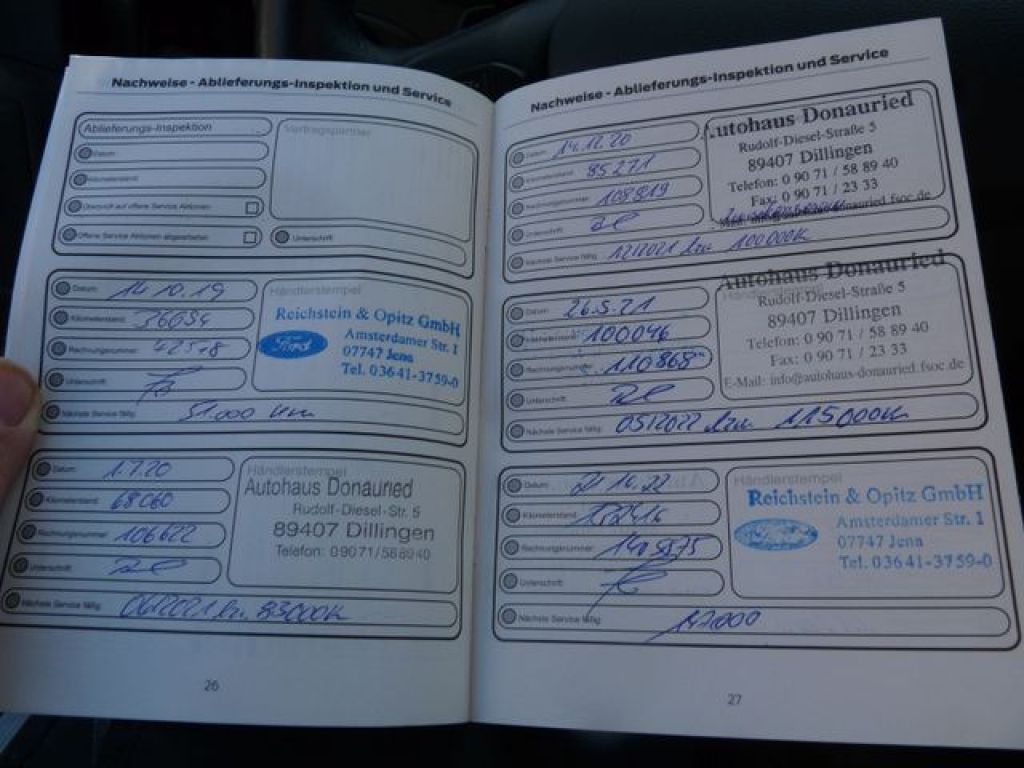 Nachweise - Ablieferungs-Inspektion und Service
Ablieferungs-Inspektion
Vertragspartner
Datum
Kilometerstand
Überprüft auf offene Service Aktionen
Offene Service Aktionen abgearbeitet
Unterschrift
Datum: 14.10.19
Händlerstempel
Kilometerstand:
Rechnungsnummer:
Unterschrift:
Nächste Service fällig: 51.000 km
Reichstein & Opitz GmbH
Ford
Amsterdamer Str. 1
07747 Jena
Tel. 03641-3759-0
Datum: 1.7.20
Händlerstempel
Kilometerstand: 68060
Rechnungsnummer: 106622
Unterschrift:
Nächste Service fällig: 06/2021 bzw. 83000K
Autohaus Donauried
Rudolf-Diesel-Str. 5
89407 Dillingen
Telefon: 09071/588940
26
Nachweise - Ablieferungs-Inspektion und Service
Datum: 14.12.20
Kilometerstand: 85271
Rechnungsnummer: 108819
Unterschrift:
Nächste Service fällig: 12/2021 bzw. 100000K
Autohaus Donauried
Rudolf-Diesel-Straße 5
89407 Dillingen
Telefon: 0 90 71 / 58 89 40
Fax: 0 90 71 / 23 33
Datum: 26.5.21
Händlerstempel
Kilometerstand: 100046
Rechnungsnummer: 110868
Unterschrift:
Nächste Service fällig: 05/2022 bzw. 115000K
Autohaus Donauried
Rudolf-Diesel-Straße 5
89407 Dillingen
Telefon: 0 90 71 / 58 89 40
Fax: 0 90 71 / 23 33
E-Mail: info@autohaus-donauried.fsoc.de
Datum:
Händlerstempel
Kilometerstand:
Rechnungsnummer:
Unterschrift:
Nächste Service fällig:
Reichstein & Opitz GmbH
Amsterdamer Str. 1
07747 Jena
Tel. 03641-3759-0
27